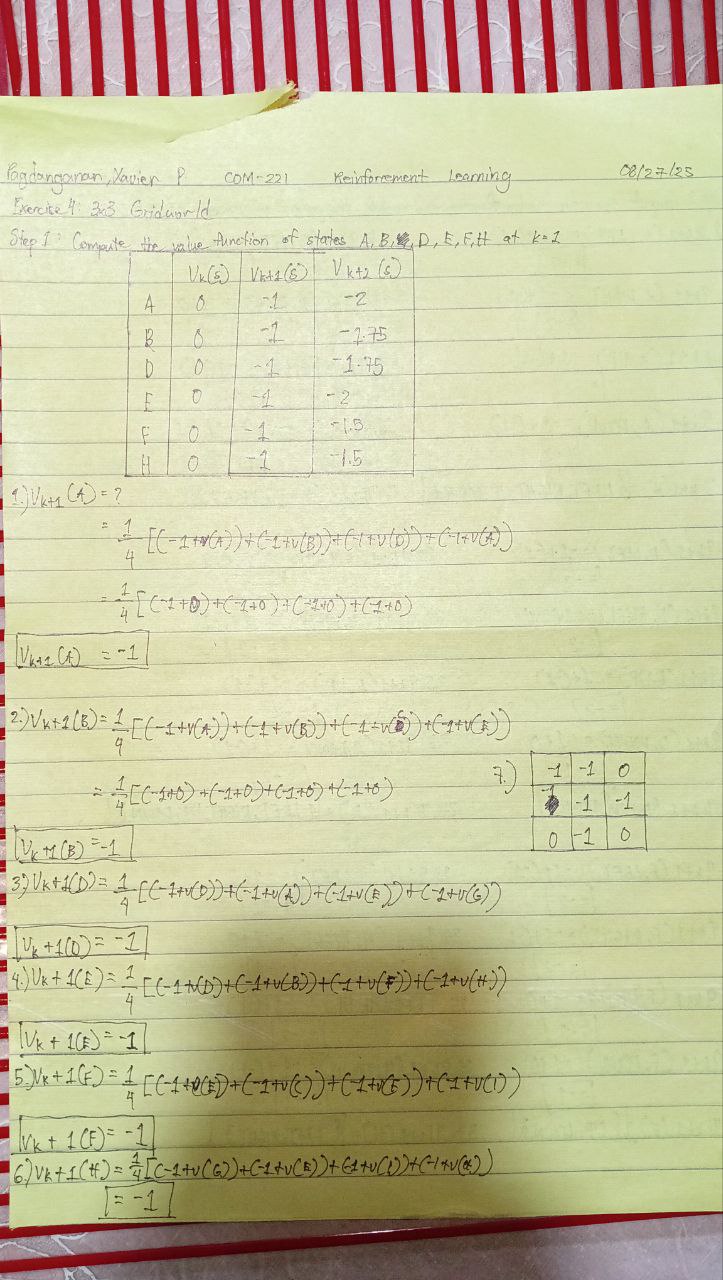 Pagdanganan, Xavier P. COM-221 Reinforcement Learning 08/27/25
Exercise 4: 3x3 Gridworld
Step 1: Compute the value function of states A, B, D, E, F, H at k=1
Vk(s) Vk+1(s) Vk+2(s)
A 0 -1 -2
B 0 -1 -1.75
D 0 -1 -1.75
E 0 -1 -2
F 0 -1 -1.5
H 0 -1 -1.5
1.) Vk+1(A) = ?
= 1/4 [(-1+v(A))+(-1+v(B))+(-1+v(D))+(-1+v(A))
= 1/4 [(-1+0)+(-1+0)+(-1+0)+(-1+0)
Vk+1(A) = -1
2.) Vk+1(B) = 1/4 [(-1+v(A))+(-1+v(B))+(-1+v(C))+(-1+v(E))
= 1/4 [(-1+0)+(-1+0)+(-1+0)+(-1+0)
Vk+1(B) = -1
7.) -1 -1 0
-1 -1 -1
0 -1 0
3.) Vk+1(D) = 1/4 [(-1+v(D))+(-1+v(A))+(-1+v(E))+(-1+v(G))
Vk+1(D) = -1
4.) Vk+1(E) = 1/4 [(-1+v(D)+(-1+v(B))+(-1+v(F))+(-1+v(H))
Vk+1(E) = -1
5.) Vk+1(F) = 1/4 [(-1+v(E)+(-1+v(C))+(-1+v(F))+(-1+v(I))
Vk+1(F) = -1
6.) Vk+1(H) = 1/4 [(-1+v(G))+(-1+v(E))+(-1+v(I))+(-1+v(H))
= -1